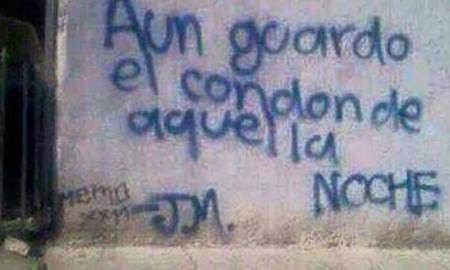 Aun guardo
el condon de
aquella
NOCHE
-JM.